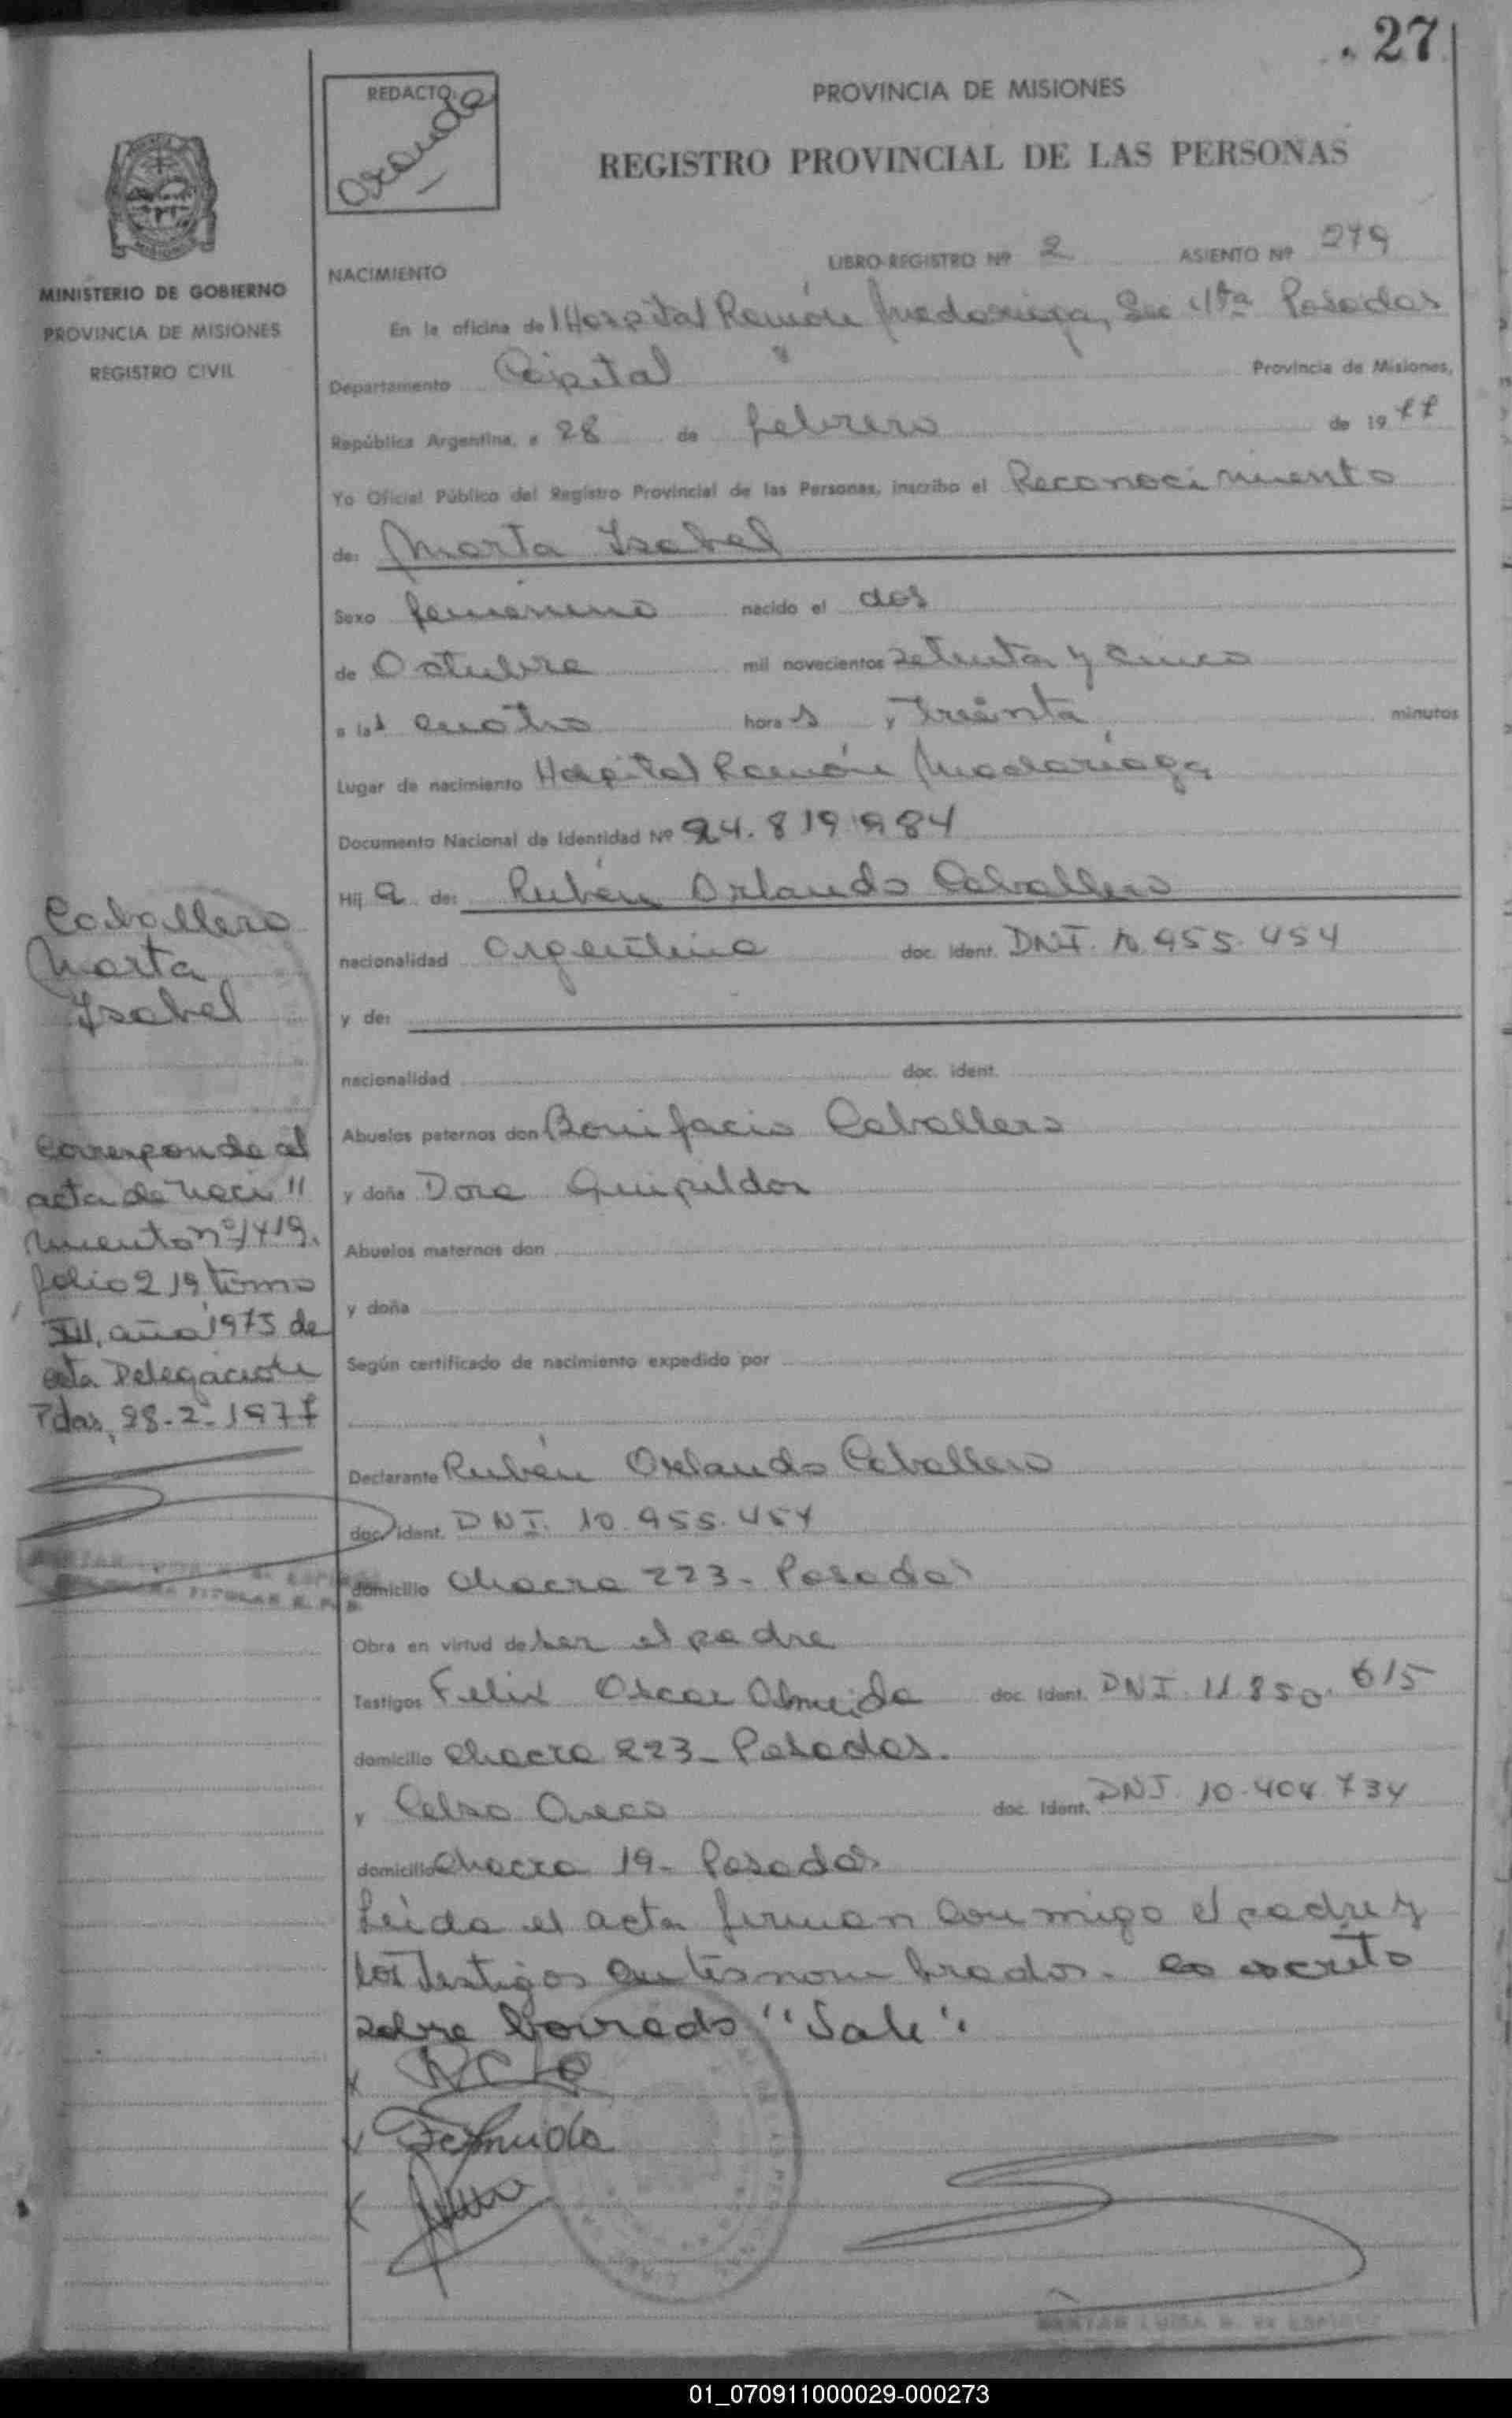 27
REDACTO:
PROVINCIA DE MISIONES
REGISTRO PROVINCIAL DE LAS PERSONAS
LIBRO-REGISTRO Nº 2 ASIENTO Nº 279
NACIMIENTO
MINISTERIO DE GOBIERNO
PROVINCIA DE MISIONES
REGISTRO CIVIL
En la oficina del Hospital Ramón Madariaga, Sec 4ta Posadas
Departamento Capital Provincia de Misiones,
República Argentina, a 28 de febrero de 1977
Yo Oficial Público del Registro Provincial de las Personas, inscribo el Reconocimiento
de: Marta Isabel
Sexo femenino nacido el dos
de Octubre mil novecientos setenta y cinco
a las cuatro horas y treinta minutos
Lugar de nacimiento Hospital Ramón Madariaga
Documento Nacional de Identidad Nº 24.819.984
Hija de: Rubén Orlando Caballero
nacionalidad Argentina doc. ident. DNI. 10.955.454
y de:
nacionalidad doc. ident.
Abuelos paternos don Bonifacio Caballero
y doña Dora Quipildor
Abuelos maternos don
y doña
Según certificado de nacimiento expedido por
Declarante Rubén Orlando Caballero
doc. ident. DNI. 10.955.454
domicilio Chacra 223 - Posadas
Obra en virtud de ser el padre
Testigos Felix Oscar Almeida doc. ident. DNI. 11.850.615
domicilio Chacra 223 - Posadas.
y Celso doc. ident. DNI. 10.404.734
domicilio Chacra 19 - Posadas
Leida el acta firman conmigo el padre y
los testigos antes nombrados. escrito
sobre borrado "Vale".
Caballero
Marta
Isabel
Corresponde al
acta de naci"
miento nº 1419.
folio 219 tomo
VIII, año 1975 de
esta Delegación
Pdas, 28-2-1977
01_070911000029-000273